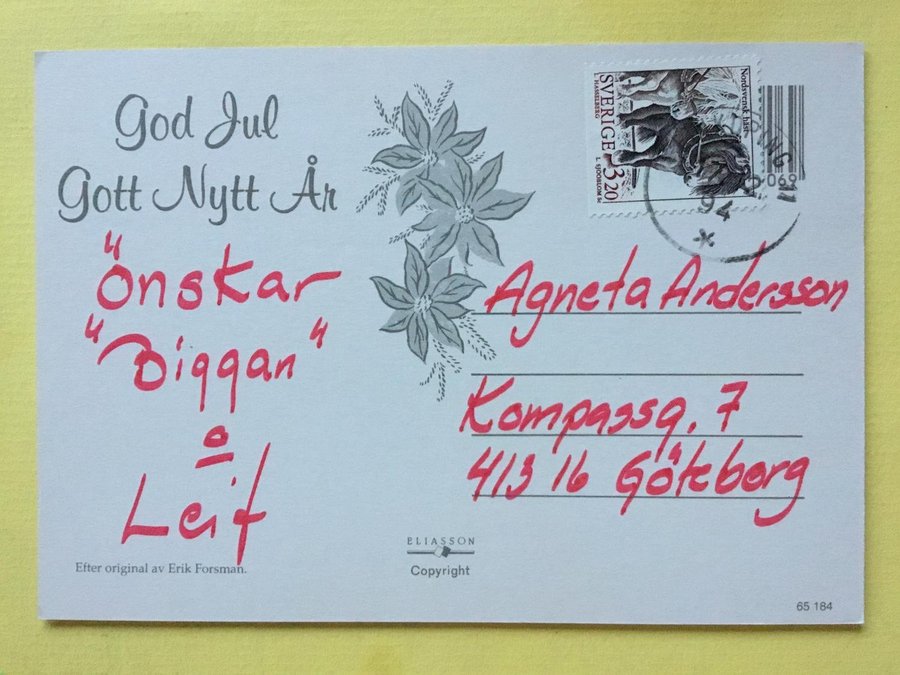 God Jul
Gott Nytt År
"Önskar
"Biggan"
o
Leif
Efter original av Erik Forsman.
ELIASSON
Copyright
Nordsvensk häst
SVERIGE 3.20
L. SJÖÖBLOM SC
94
Agneta Andersson
Kompassg. 7
413 16 Göteborg
65 184